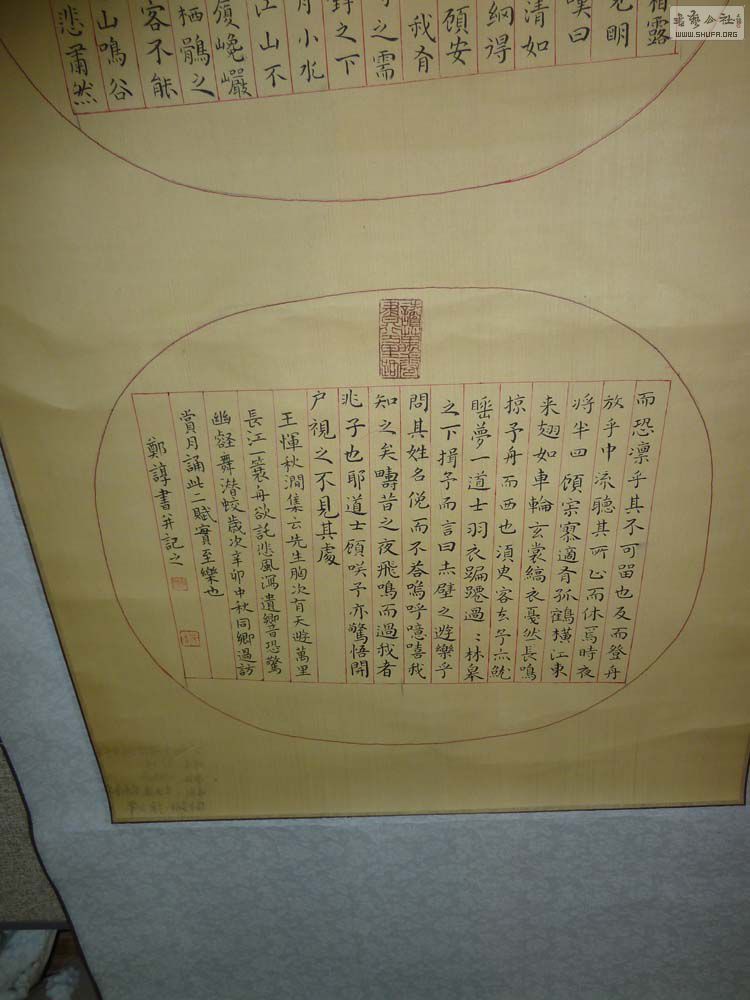 書藝公社
WWW.SHUFA.ORG
霜露
見明
嘆曰
清如
網得
顧安
我有
之需
之下
月小水
江山不
履巉巖
栖鶻之
客不能
山鳴谷
悲肅然
而恐凜乎其不可留也反而登舟
放乎中流聽其所止而休焉時夜
將半四顧寂寥適有孤鶴橫江東
来翅如車輪玄裳縞衣戛然長鳴
掠予舟而西也須臾客去予亦就
睡夢一道士羽衣蹁躚過:林皋
之下揖予而言曰赤壁之遊樂乎
問其姓名俛而不答嗚呼噫嘻我
知之矣疇昔之夜飛鳴而過我者
非子也耶道士顧咲予亦驚悟開
户視之不見其處
王惲秋澗集云先生胸次有天遊萬里
長江一葉舟欲託悲風瀉遺響恐驚
幽壑舞潛蛟歲次辛卯中秋同鄉過訪
賞月誦此二賦實至樂也
鄭諄書并記之